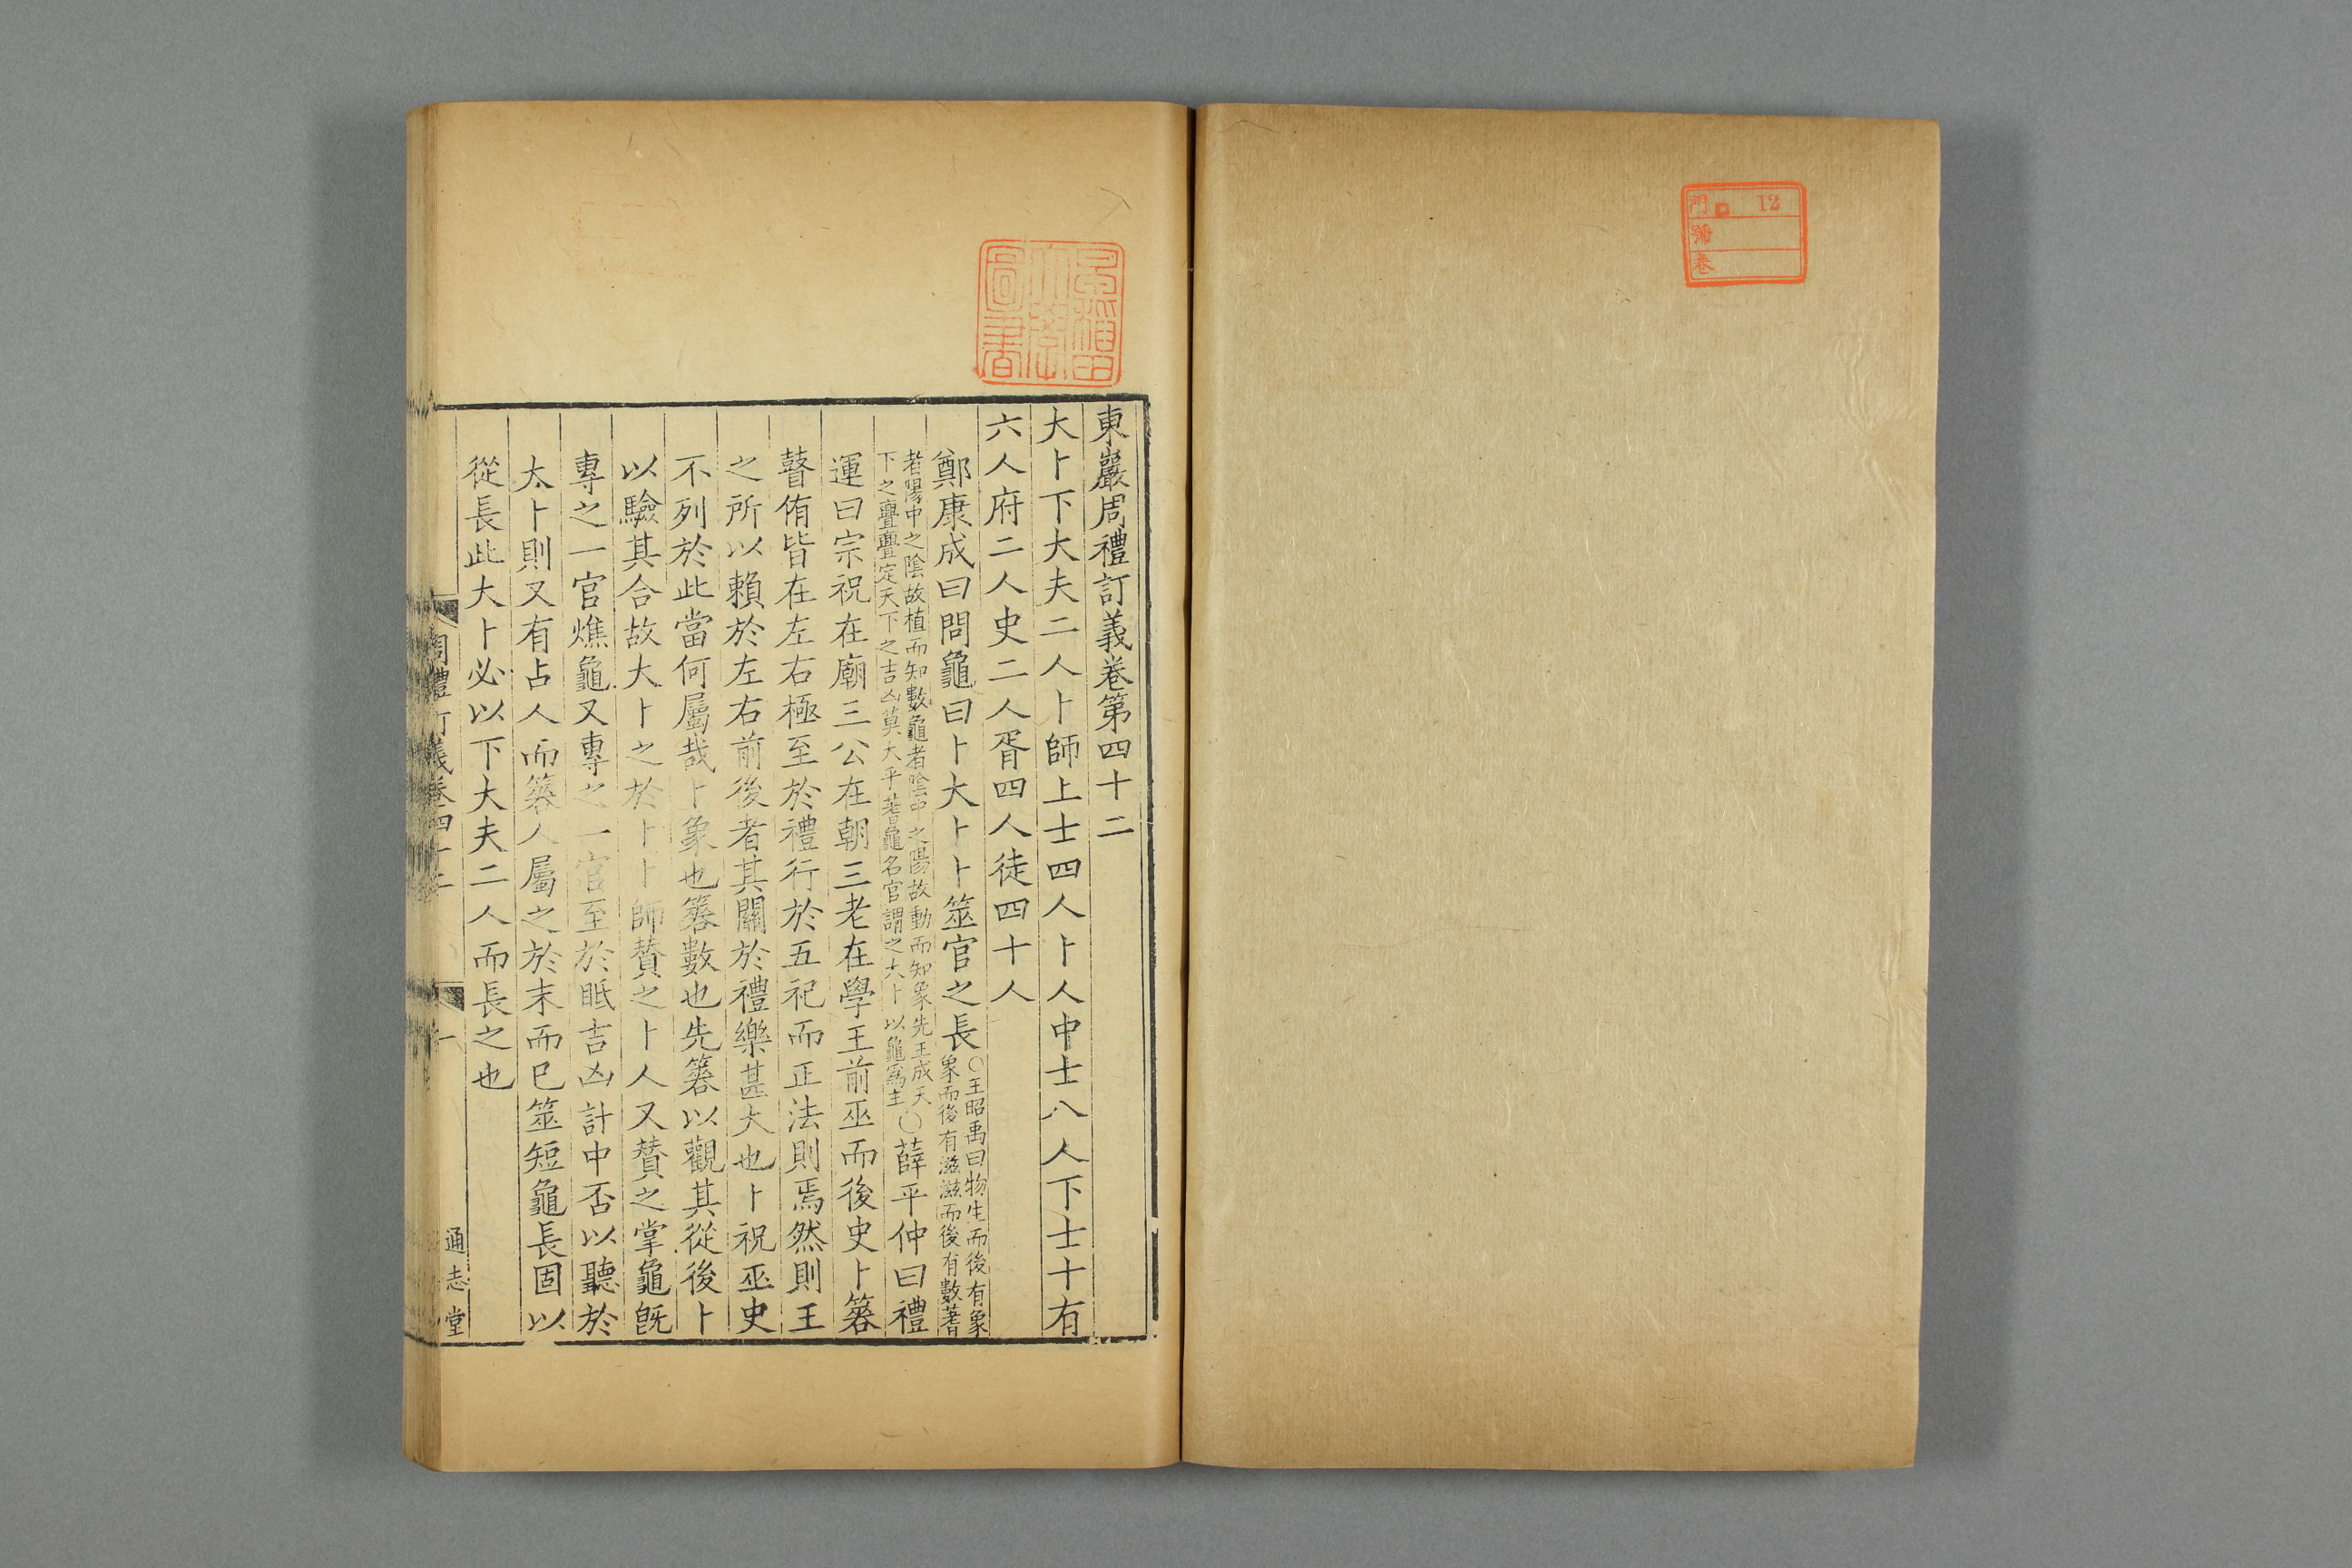 門 12
號
卷
圖書
東巖周禮訂義卷第四十二
大卜下大夫二人卜師上士四人卜人中士八人下士十有
六人府二人史二人胥四人徒四十人
鄭康成曰問龜曰卜大卜卜筮官之長○王昭禹曰物生而後有象
象而後有滋滋而後有數蓍
者陽中之陰故植而知數龜者陰中之陽故動而知象先王成天
下之亹亹定天下之吉凶莫大乎蓍龜名官謂之大卜以龜為主○薛平仲曰禮
運曰宗祝在廟三公在朝三老在學王前巫而後史卜簭
瞽侑皆在左右極至於禮行於五祀而正法則焉然則王
之所以賴於左右前後者其關於禮樂甚大也卜祝巫史
不列於此當何屬哉卜象也簭數也先簭以觀其從後卜
以驗其合故大卜之於卜卜師贊之卜人又贊之掌龜旣
專之一官燋龜又專之一官至於眡吉凶計中否以聽於
太卜則又有占人而簭人屬之於末而已筮短龜長固以
從長此大卜必以下大夫二人而長之也
周禮訂義卷四十二 一 通志堂